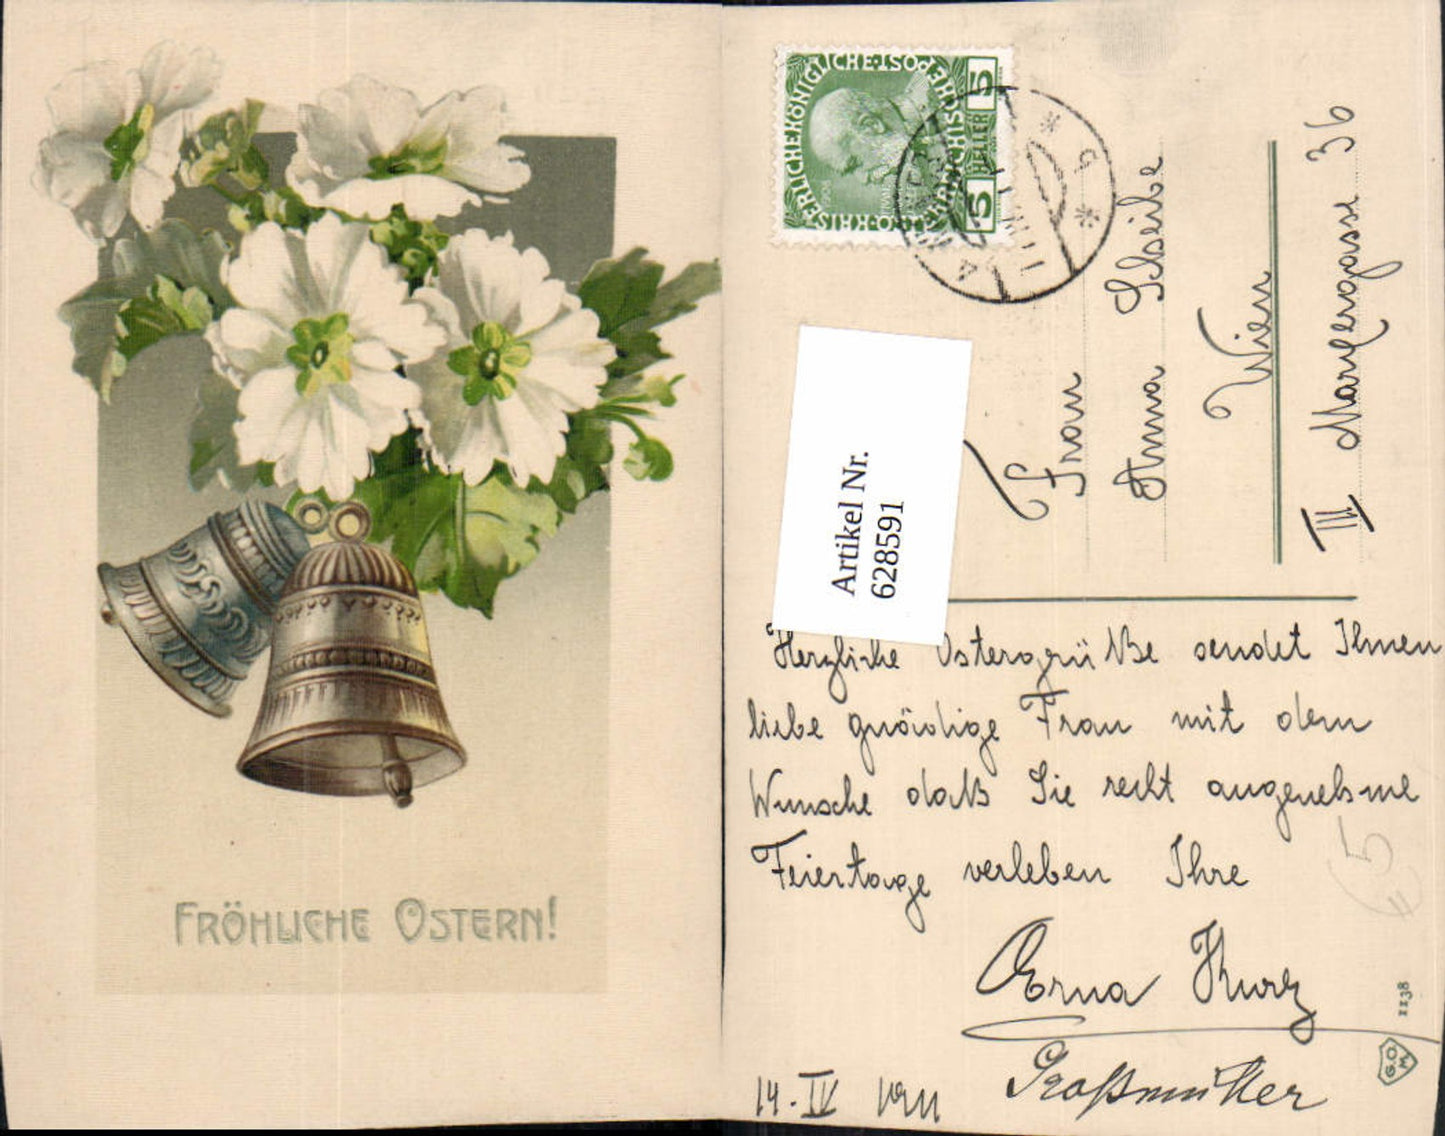 FRÖHLICHE OSTERN!
KAISERLICHE KÖNIGLICHE ÖSTERREICHISCHE POST
5 HELLER 5
Artikel Nr.
628591
Frau
Anna Scheibe
Wien
III Marxergasse 36
Herzliche Ostergrüße sendet Ihnen
liebe gnädige Frau mit dem
Wunsche daß Sie recht angenehme
Feiertage verleben Ihre
Erna Kurz
Großmutter
14. IV 1911
1138
G.O.M